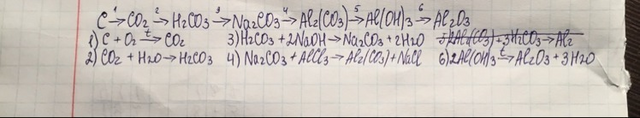 C ¹→ CO₂ ²→ H₂CO₃ ³→ Na₂CO₃ ⁴→ Al₂(CO₃) ⁵→ Al(OH)₃ ⁶→ Al₂O₃
1) C + O₂ t→ CO₂ 3) H₂CO₃ + 2NaOH → Na₂CO₃ + 2H₂O 5) 2Al₂(CO₃) + 3H₂CO₃ → Al₂
2) CO₂ + H₂O → H₂CO₃ 4) Na₂CO₃ + AlCl₃ → Al₂(CO₃) + NaCl 6) 2Al(OH)₃ t→ Al₂O₃ + 3H₂O